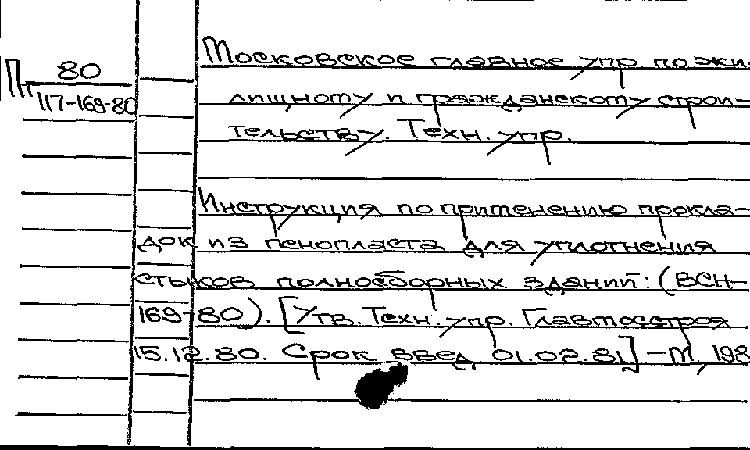 Пт 80
117-169-80
Московское главное упр. по жи-
лищному и гражданскому строи-
тельству. Техн. упр.
Инструкция по применению прокла-
док из пенопласта для уплотнения
стыков полносборных зданий: (ВСН-
169-80). [Утв. Техн. упр. Главмосстроя
15.12.80. Срок введ 01.02.81] -М, 198